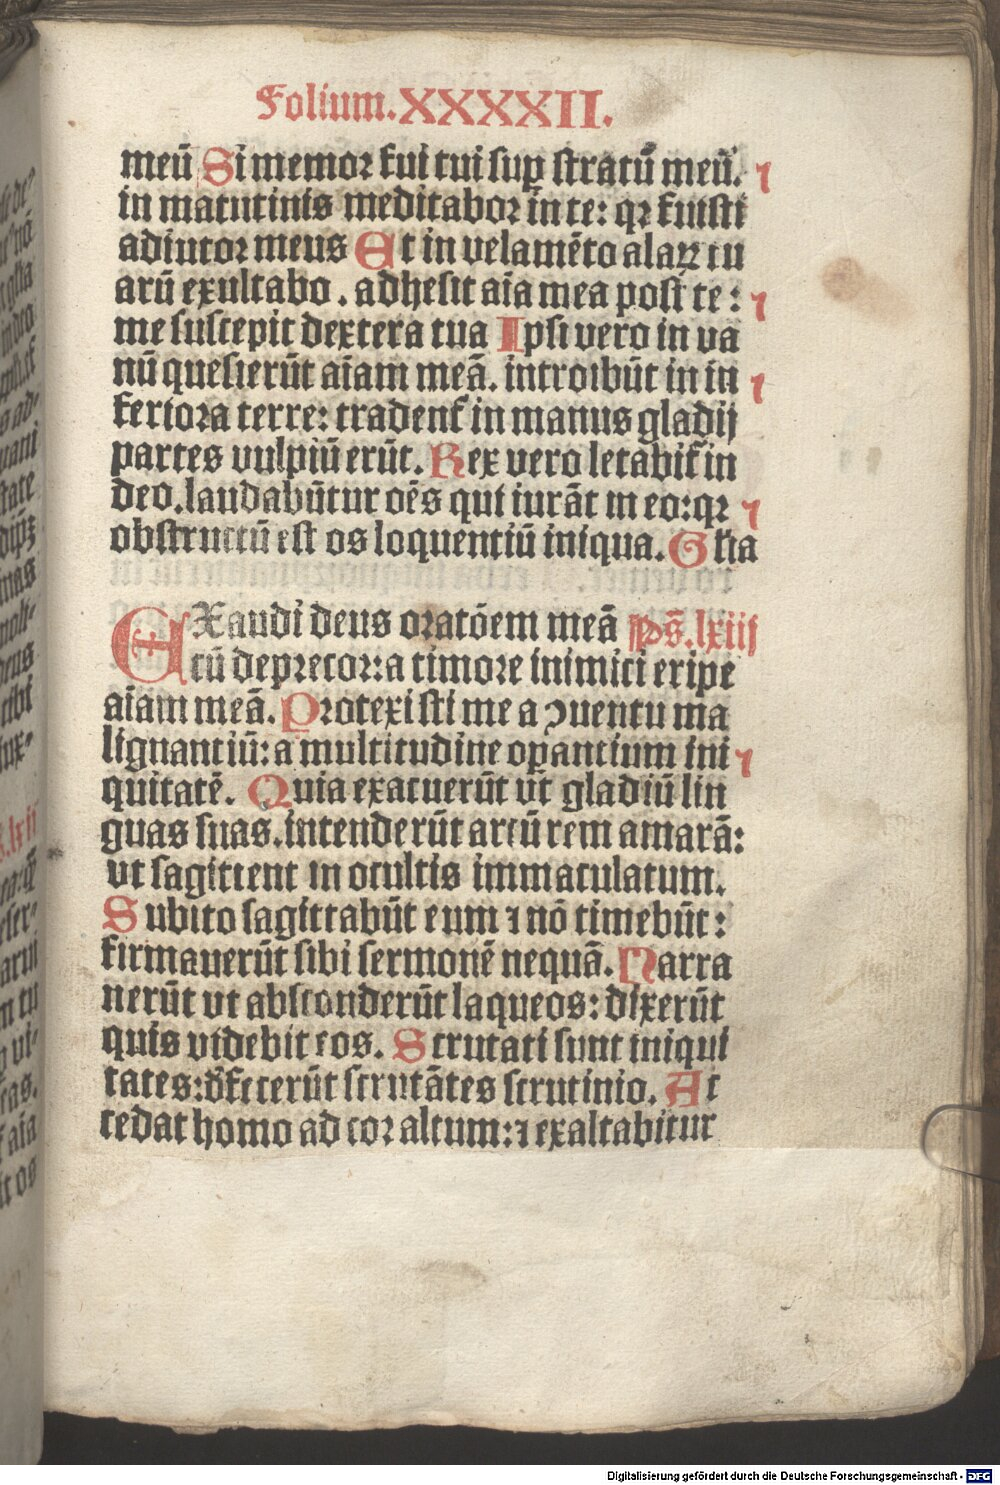 Folium.XXXXII.
meū Si memor fui tui sup stratū meū.
in matutinis meditabor in te: qꝛ fuisti
adiutor meus Et in velamēto alaꝝ tu
arū exultabo. adhesit aīa mea post te:
me suscepit dextera tua Ipsi vero in va
nū quesierūt aīam meā. introibūt in in
feriora terre: tradent̄ in manus gladij
partes vulpiū erūt. Rex vero letabit̄ in
deo. laudabūtur oēs qui iurāt in eo: qꝛ
obstructū est os loquentiū iniqua. Gl̄ia
EXaudi deus oratōem meā Ps̄.lxiij
cū deprecor: a timore inimici eripe
aīam meā. Protexisti me a ꝯuentu ma
lignantiū: a multitudine oꝑantium ini
quitatē. Quia exacuerūt vt̄ gladiū lin
guas suas. intenderūt arcū rem amarā:
vt sagittent in ocultis immaculatum.
Subito sagittabūt eum ⁊ nō timebūt:
firmauerūt sibi sermonē nequā. Narra
uerūt vt absconderūt laqueos: dixerūt
quis videbit eos. Scrutati sunt iniqui
tates: d̄fecerūt scrutātes scrutinio. Ac
cedat homo ad cor altum: ⁊ exaltabitur
Digitalisierung gefördert durch die Deutsche Forschungsgemeinschaft - DFG